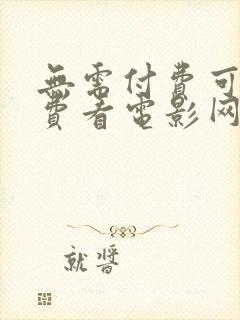 無需付費可
費看電影网
就醬